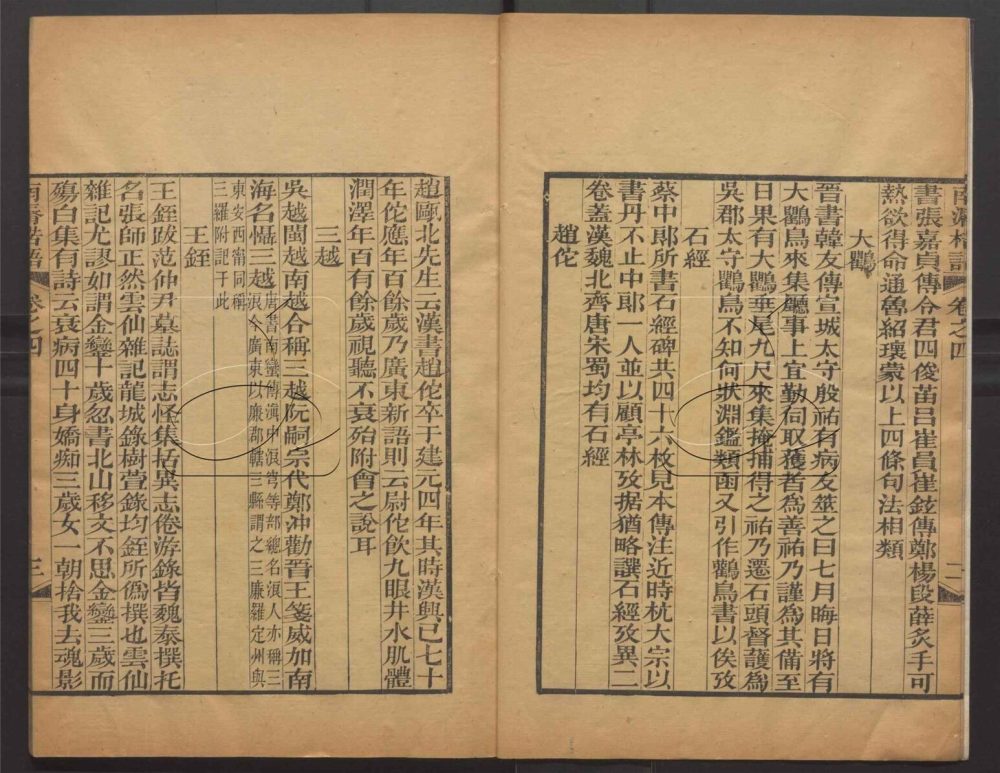 南漘楛語 卷之四 二
書張嘉貞傳令君四俊苗呂崔員崔鉉傳鄭楊段薛炙手可
熱欲得命通魯紹瓌蒙以上四條句法相類
大鸜
晉書韓友傳宣城太守殷祐有病友筮之曰七月晦日將有
大鸜鳥來集廳事上宜勤伺取獲者為善祐乃謹為其備至
日果有大鸜垂尾九尺來集掩捕得之祐乃遷石頭督護為
吳郡太守鸜鳥不知何狀淵鑑類函又引作鸛鳥書以俟攷
石經
蔡中郎所書石經碑共四十六枚見本傳注近時杭大宗以
書丹不止中郎一人並以顧亭林攷据猶略譔石經攷異二
卷蓋漢魏北齊唐宋蜀均有石經
趙佗
趙甌北先生云漢書趙佗卒于建元四年其時漢興已七十
年佗應年百餘歲乃廣東新語則云尉佗飲九眼井水肌體
潤澤年百有餘歲視聽不衰殆附會之說耳
三越
吳越閩越南越合稱三越阮嗣宗代鄭沖勸晉王箋威加南
海名懾三越唐書南蠻傳滇中浪穹等部總名浪人亦稱三
浪今廣東以廉郡轄三縣謂之三廉羅定州與
東安西甯同稱
三羅附記于此
王銍
王銍跋范仲尹墓誌謂志怪集括異志倦游錄皆魏泰撰托
名張師正然雲仙雜記龍城錄樹萱錄均銍所偽撰也雲仙
雜記尤謬如謂金鑾十歲忽書北山移文不思金鑾三歲而
殤白集有詩云衰病四十身嬌痴三歲女一朝捨我去魂影
南漘楛語 卷之四 三